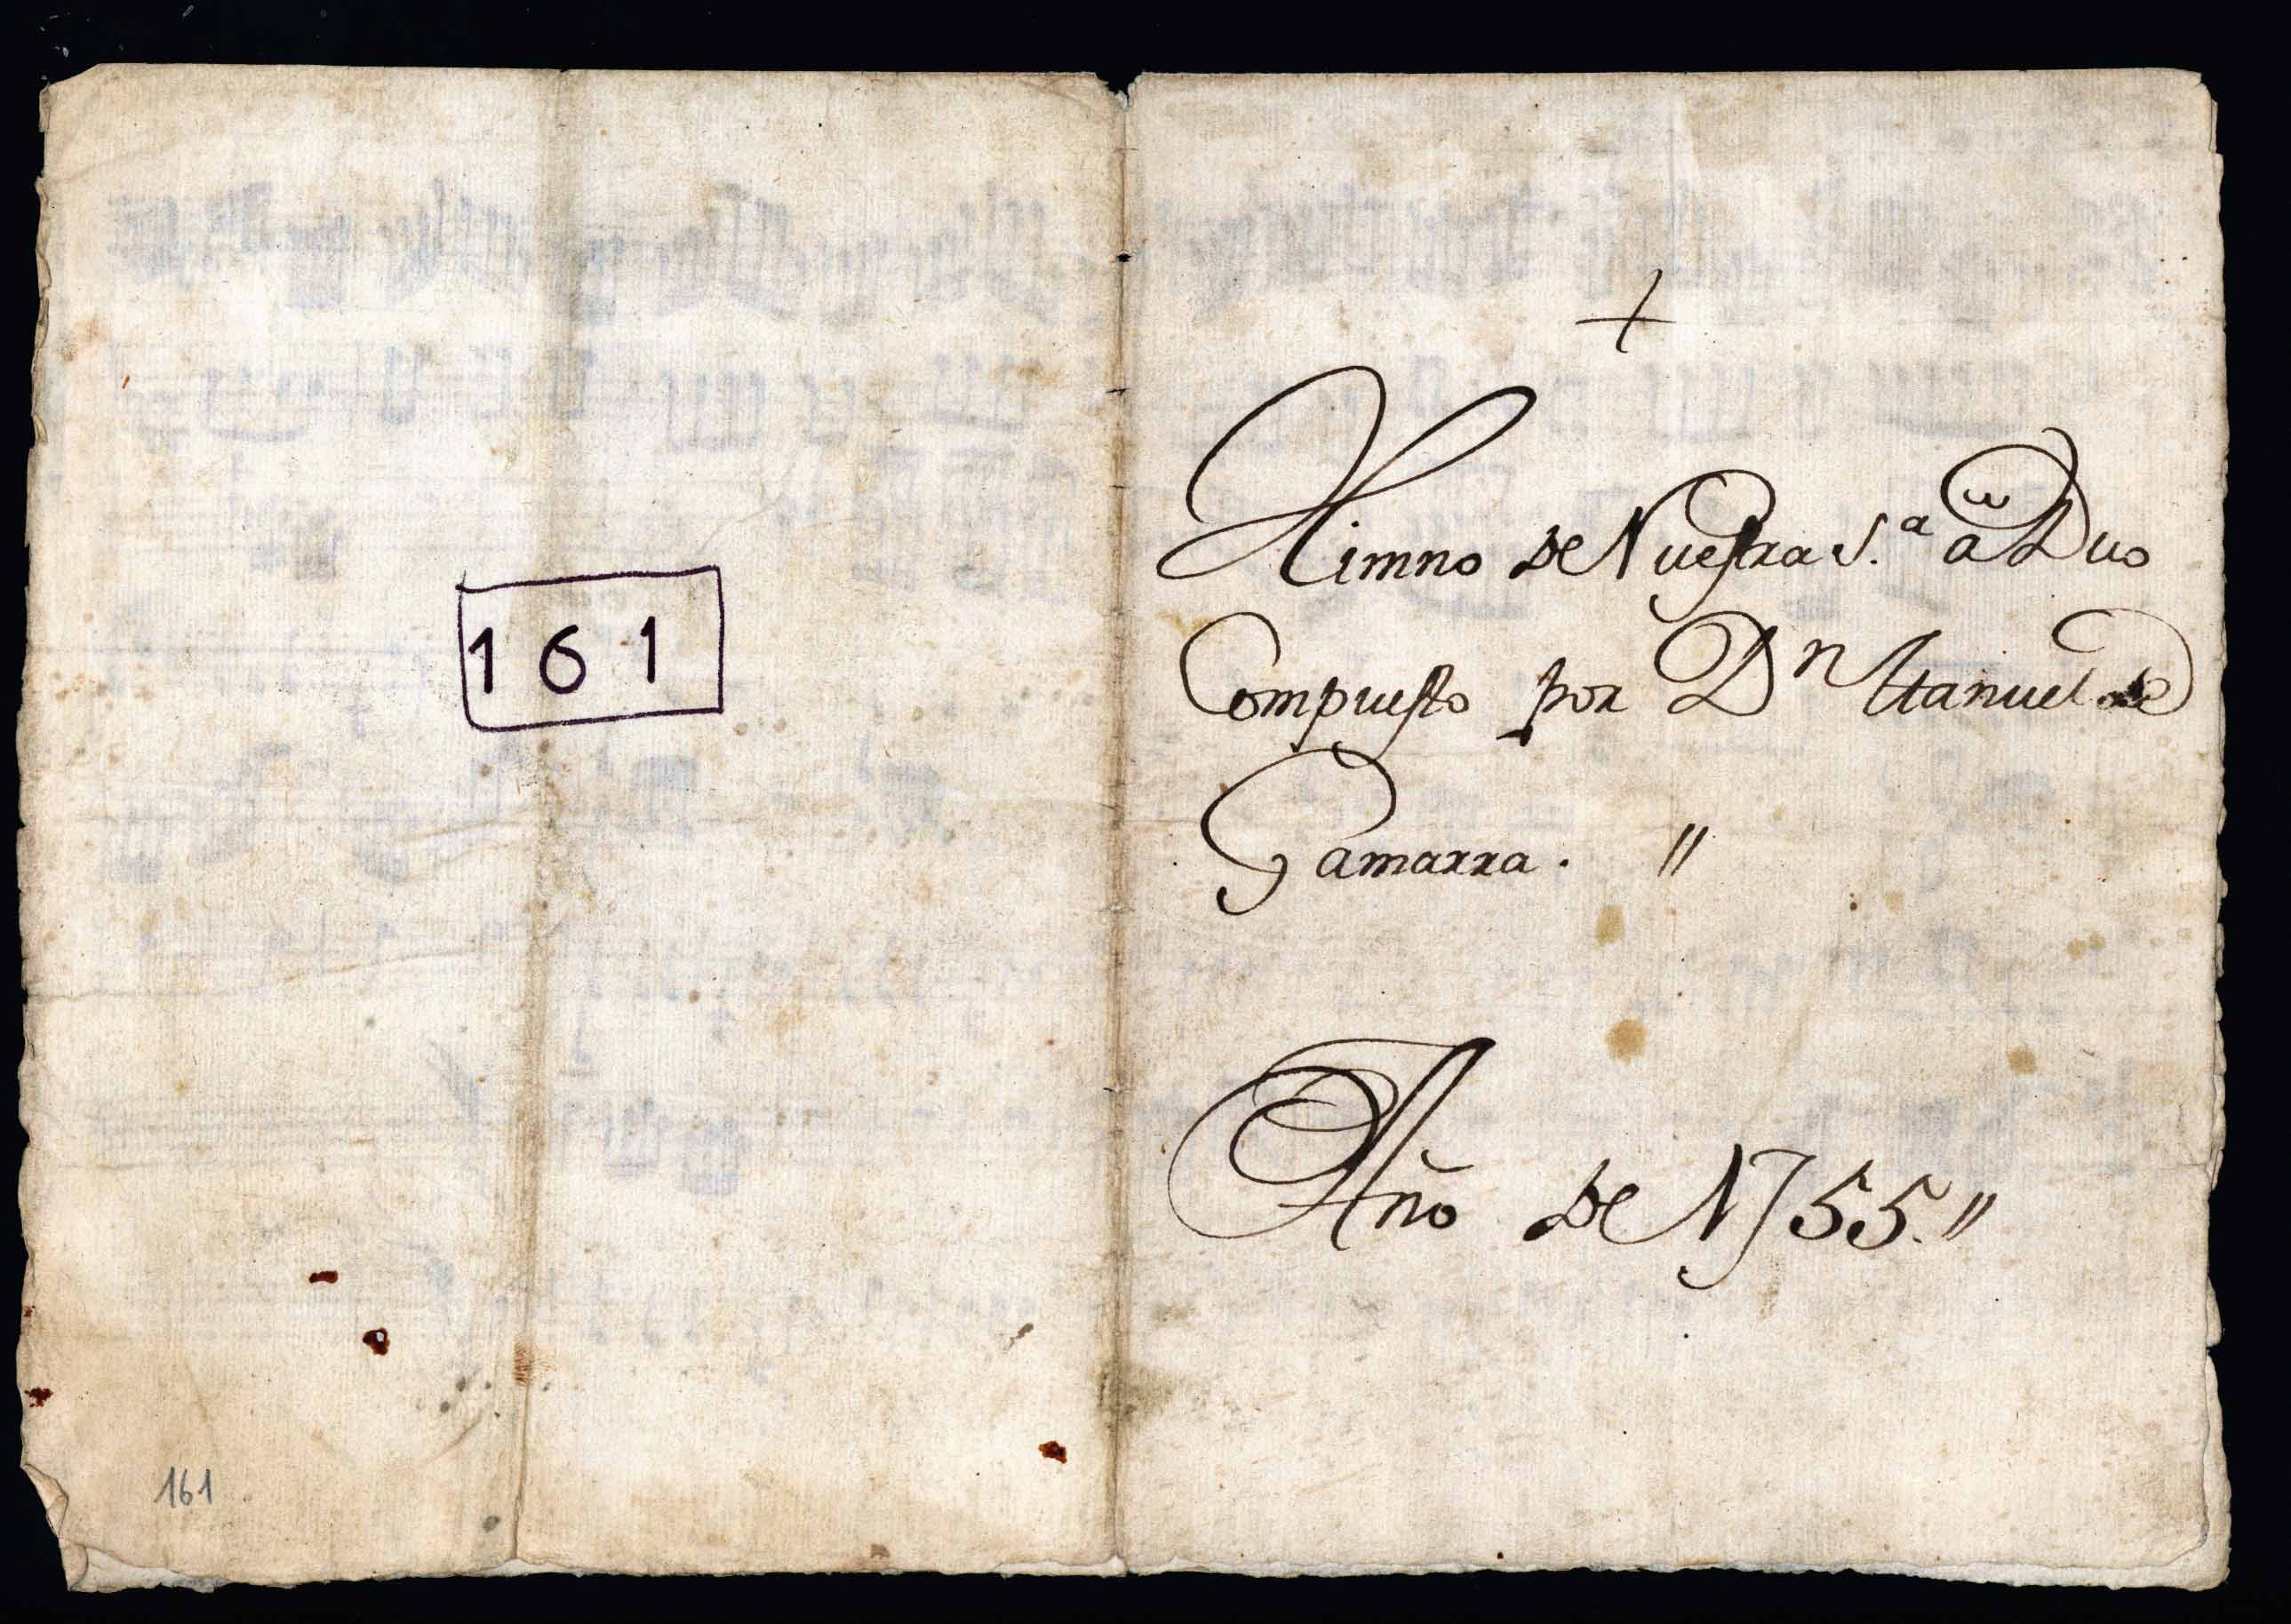 161
161
+
Himno de Nuestra S.ª â Duo
Compuesto por Dn Manuel de
Gamarra. //
Año de 1755. //